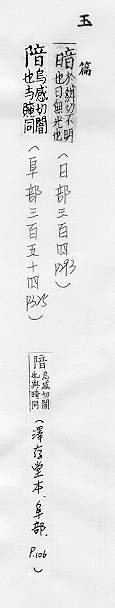 玉篇
暗於紺切不明也日無光也(日部三百四P.293)
䧄烏感切闇也亦与暗同(阜部三百五十四P.325)
䧄烏感切闇也與暗同(澤存堂本、阜部、P.106)